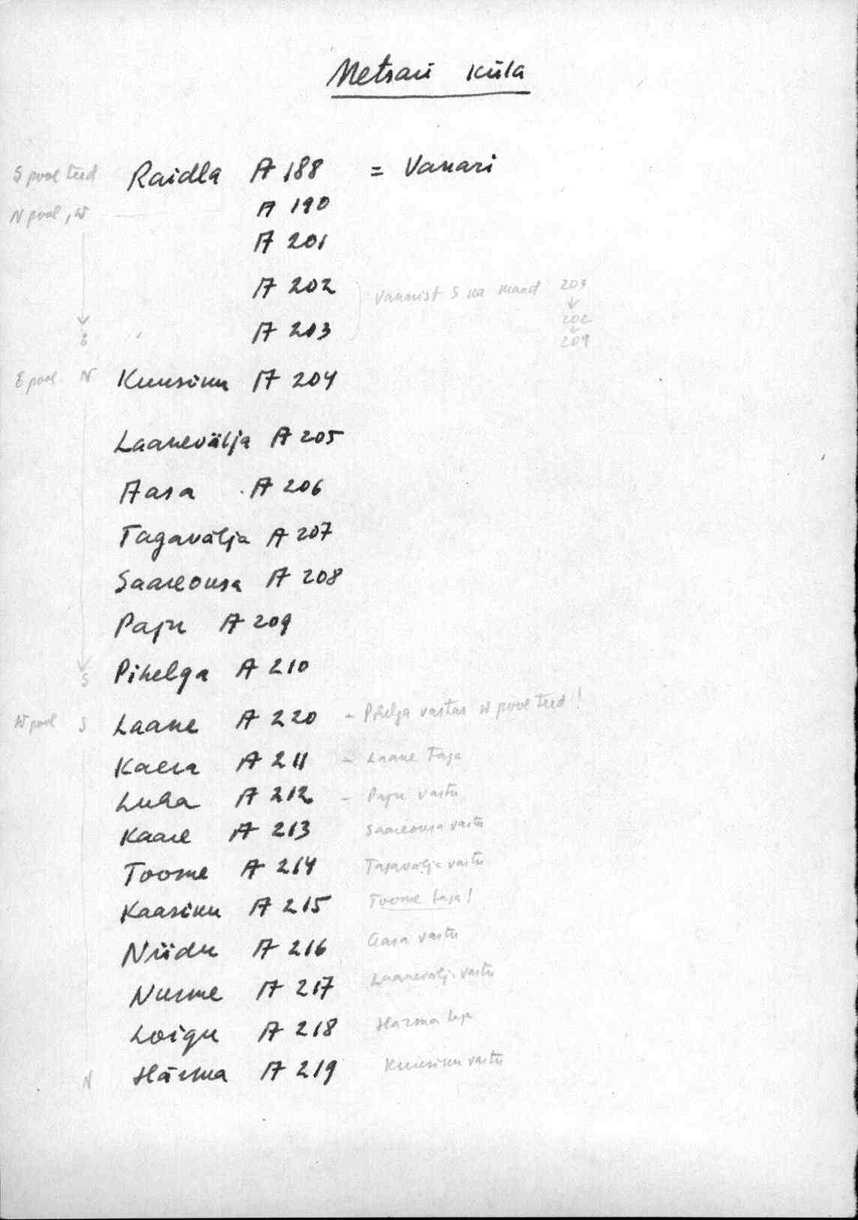 Metsaü küla
S pool teed Raidla A 188 = Vanari
N pool, W A 190
A 201
A 202 S 203
A 203 202
E 209
E pool N Kuusiku A 204
Laanevälja A 205
Aasa A 206
Tagavälja A 207
Saareousa A 208
Paju A 209
S Pihelga A 210
W pool S Laane A 220 - Pihelja vastas W pool teed!
Kaera A 211 - Laane taga
Luha A 212 - Paju vastu
Kaare A 213 Saareousa vastu
Toome A 214 Tagavälja vastu
Kaasiku A 215 Toome taga!
Niidu A 216 Aasa vastu
Nurme A 217 Laanevälja vastu
Loigu A 218 Härma
N Härma A 219 Kuusiku vastu